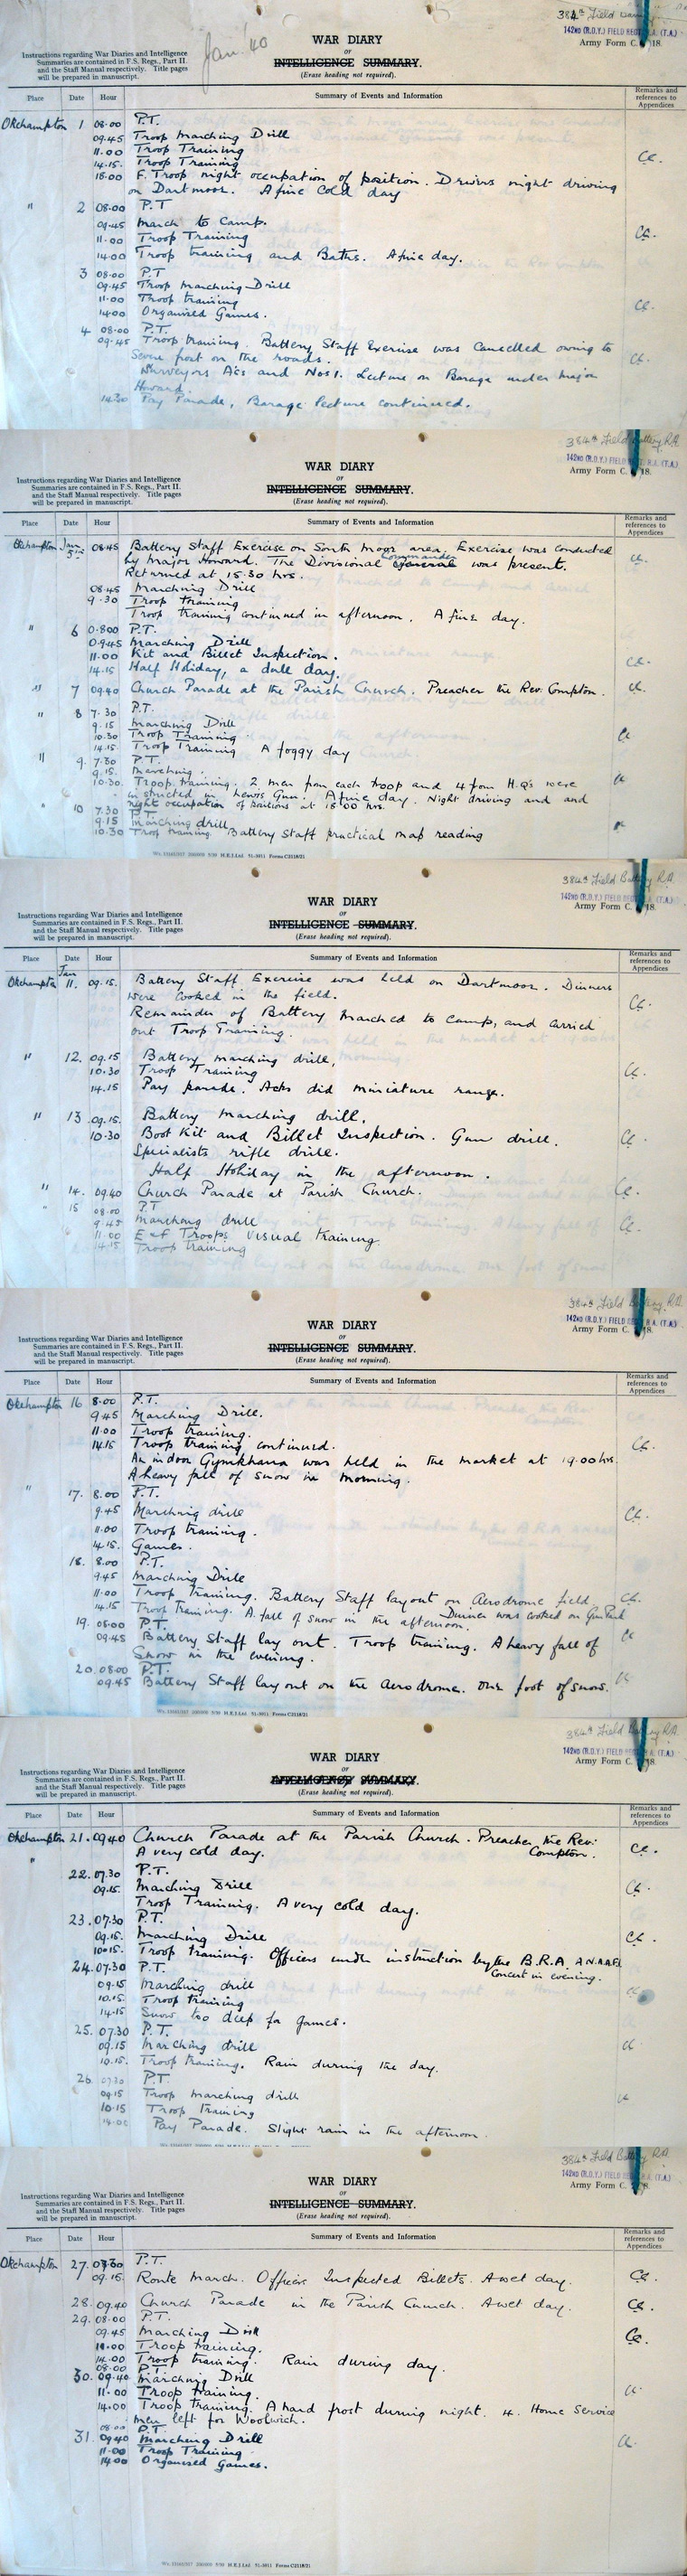 Jan. '40
384th Field Battery
142ND (R.D.Y.) FIELD REGT. R.A. (T.A.)
Army Form C. 18.
WAR DIARY
or
INTELLIGENCE SUMMARY.
(Erase heading not required).
Instructions regarding War Diaries and Intelligence
Summaries are contained in F.S. Regs., Part II.
and the Staff Manual respectively. Title pages
will be prepared in manuscript.
Place Date Hour Summary of Events and Information Remarks and references to Appendices
Okehampton 1 08.00 P.T.
09.45 Troop marching Drill
11.00 Troop Training
14.15. Troop Training
18.00 F. Troop night occupation of position. Drivers night driving
on Dartmoor. A fine Cold day
" 2 08.00 P.T
09.45 March to Camp.
11.00 Troop Training
14.00 Troop training and Baths. A fine day.
3 08.00 P.T
09.45 Troop Marching Drill
11.00 Troop training
14.00 Organised Games.
4 08.00 P.T.
09.45 Troop training. Battery Staff Exercise was Cancelled owing to
Severe frost on the roads.
Surveyors Acks and Nos 1. Lecture on Barage under Major
Howard.
14.30 Pay Parade, Barage lecture continued.
384th Field Battery R.A.
142ND (R.D.Y.) FIELD REGT. R.A. (T.A.)
Army Form C. 18.
WAR DIARY
or
INTELLIGENCE SUMMARY.
(Erase heading not required).
Instructions regarding War Diaries and Intelligence
Summaries are contained in F.S. Regs., Part II.
and the Staff Manual respectively. Title pages
will be prepared in manuscript.
Place Date Hour Summary of Events and Information Remarks and references to Appendices
Okehampton Jan 5th 08.45 Battery Staff Exercise on South Moor area. Exercise was conducted
by Major Howard. The Divisional Commander was present.
Returned at 15.30 hrs.
08.45 Marching Drill
9.30 Troop training
Troop training continued in afternoon. A fine day.
" 6 0.800 P.T.
0.945 Marching Drill
11.00 Kit and Billet Inspection.
14.15 Half Holiday, a dull day.
" 7 09.40 Church Parade at the Parish Church. Preacher the Rev. Compton.
" 8 7.30 P.T.
9.15 marching Drill
10.30 Troop Training
14.15 Troop Training A foggy day
" 9. 7.30 P.T.
9.15. Marching.
10.30. Troop training. 2 men from each troop and 4 from H.Q's were
instructed in Lewis Gun. A fine day. Night driving and and
night occupation of positions at 18.00 hrs.
" 10 7.30 P.T.
9.15 Marching drill
10.30 Troop training Battery Staff practical map reading
384th Field Battery R.A.
142ND (R.D.Y.) FIELD REGT. R.A. (T.A.)
Army Form C. 18.
WAR DIARY
or
INTELLIGENCE SUMMARY.
(Erase heading not required).
Instructions regarding War Diaries and Intelligence
Summaries are contained in F.S. Regs., Part II.
and the Staff Manual respectively. Title pages
will be prepared in manuscript.
Place Date Hour Summary of Events and Information Remarks and references to Appendices
Okehampton Jan 11. 09.15. Battery Staff Exercise was held on Dartmoor. Dinners
were Cooked in the field.
Remainder of Battery Marched to Camp, and carried
out Troop Training.
" 12. 09.15 Battery marching drill,
10.30 Troop Training
14.15 Pay parade. Acks did miniature range.
" 13 09.15. Battery marching drill.
10.30 Boot Kit and Billet Inspection. Gun drill.
Specialists rifle drill.
Half Holiday in the afternoon.
" 14. 09.40 Church Parade at Parish Church.
" 15 08.00 P.T
9.45 marching drill
11.00 E & F Troops Visual training
14.15 Troop training
384th Field Battery R.A.
142ND (R.D.Y.) FIELD REGT. R.A. (T.A.)
Army Form C. 18.
WAR DIARY
or
INTELLIGENCE SUMMARY.
(Erase heading not required).
Instructions regarding War Diaries and Intelligence
Summaries are contained in F.S. Regs., Part II.
and the Staff Manual respectively. Title pages
will be prepared in manuscript.
Place Date Hour Summary of Events and Information Remarks and references to Appendices
Okehampton 16 8.00 P.T.
9.45 Marching Drill.
11.00 Troop training.
14.15 Troop training continued.
An indoor Gymkhana was held in the market at 19.00 hrs.
A heavy fall of snow in morning.
" 17. 8.00 P.T.
9.45 Marching drill
11.00 Troop training.
14.15. Games.
18. 8.00 P.T.
9.45 Marching Drill
11.00 Troop training. Battery Staff layout on Aerodrome field.
14.15 Troop Training. A fall of snow in the afternoon. Dinner was cooked on Gun Park
19. 08.00 P.T.
09.45 Battery Staff lay out. Troop training. A heavy fall of
Snow in the evening.
20. 08.00 P.T.
09.45 Battery Staff lay out on the Aerodrome. One foot of snow.
384th Field Battery R.A.
142ND (R.D.Y.) FIELD REGT. R.A. (T.A.)
Army Form C. 18.
WAR DIARY
or
INTELLIGENCE SUMMARY.
(Erase heading not required).
Instructions regarding War Diaries and Intelligence
Summaries are contained in F.S. Regs., Part II.
and the Staff Manual respectively. Title pages
will be prepared in manuscript.
Place Date Hour Summary of Events and Information Remarks and references to Appendices
Okehampton 21. 09.40 Church Parade at the Parish Church. Preacher the Rev:
Compton.
" A very cold day.
22. 07.30 P.T.
09.15. Marching Drill
Troop Training. A very cold day.
23. 07.30 P.T.
09.15. Marching Drill
10.15. Troop training. Officers under instruction by the B.R.A. A N.A.A.F.I.
Concert in evening.
24. 07.30 P.T.
09.15 Marching drill
10.15. Troop training
14.15 Snow too deep for games.
25. 07.30 P.T.
09.15 Marching drill
10.15. Troop training. Rain during the day.
26. 07.30 P.T.
09.15 Troop marching drill
10.15 Troop training
14.00 Pay Parade. Slight rain in the afternoon.
384th Field Battery R.A.
142ND (R.D.Y.) FIELD REGT. R.A. (T.A.)
Army Form C. 18.
WAR DIARY
or
INTELLIGENCE SUMMARY.
(Erase heading not required).
Instructions regarding War Diaries and Intelligence
Summaries are contained in F.S. Regs., Part II.
and the Staff Manual respectively. Title pages
will be prepared in manuscript.
Place Date Hour Summary of Events and Information Remarks and references to Appendices
Okehampton 27. 07.30 P.T.
09.15. Route March. Officers Inspected Billets. A wet day.
28. 09.40 Church Parade in the Parish Church. A wet day.
29. 08.00 P.T.
09.45 Marching Drill
11.00 Troop training.
14.00 Troop training. Rain during day.
08.00 P.T.
30. 09.40 Marching Drill
11.00 Troop training.
14.00 Troop training. A hard frost during night. 4. Home Service
men left for Woolwich.
08.00 P.T.
31. 09.40 Marching Drill
11.00 Troop Training
14.00 Organised Games.